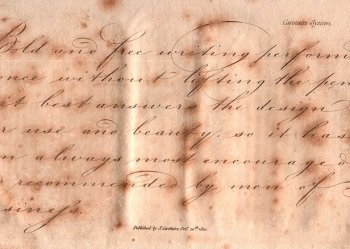 Carstairs System.
Bold and free writing perform
once without lifting the pen
it best answers the design
r use and beauty, so it has
n always most encourage d
recommended by men of
siness.
Published by J. Carstairs,